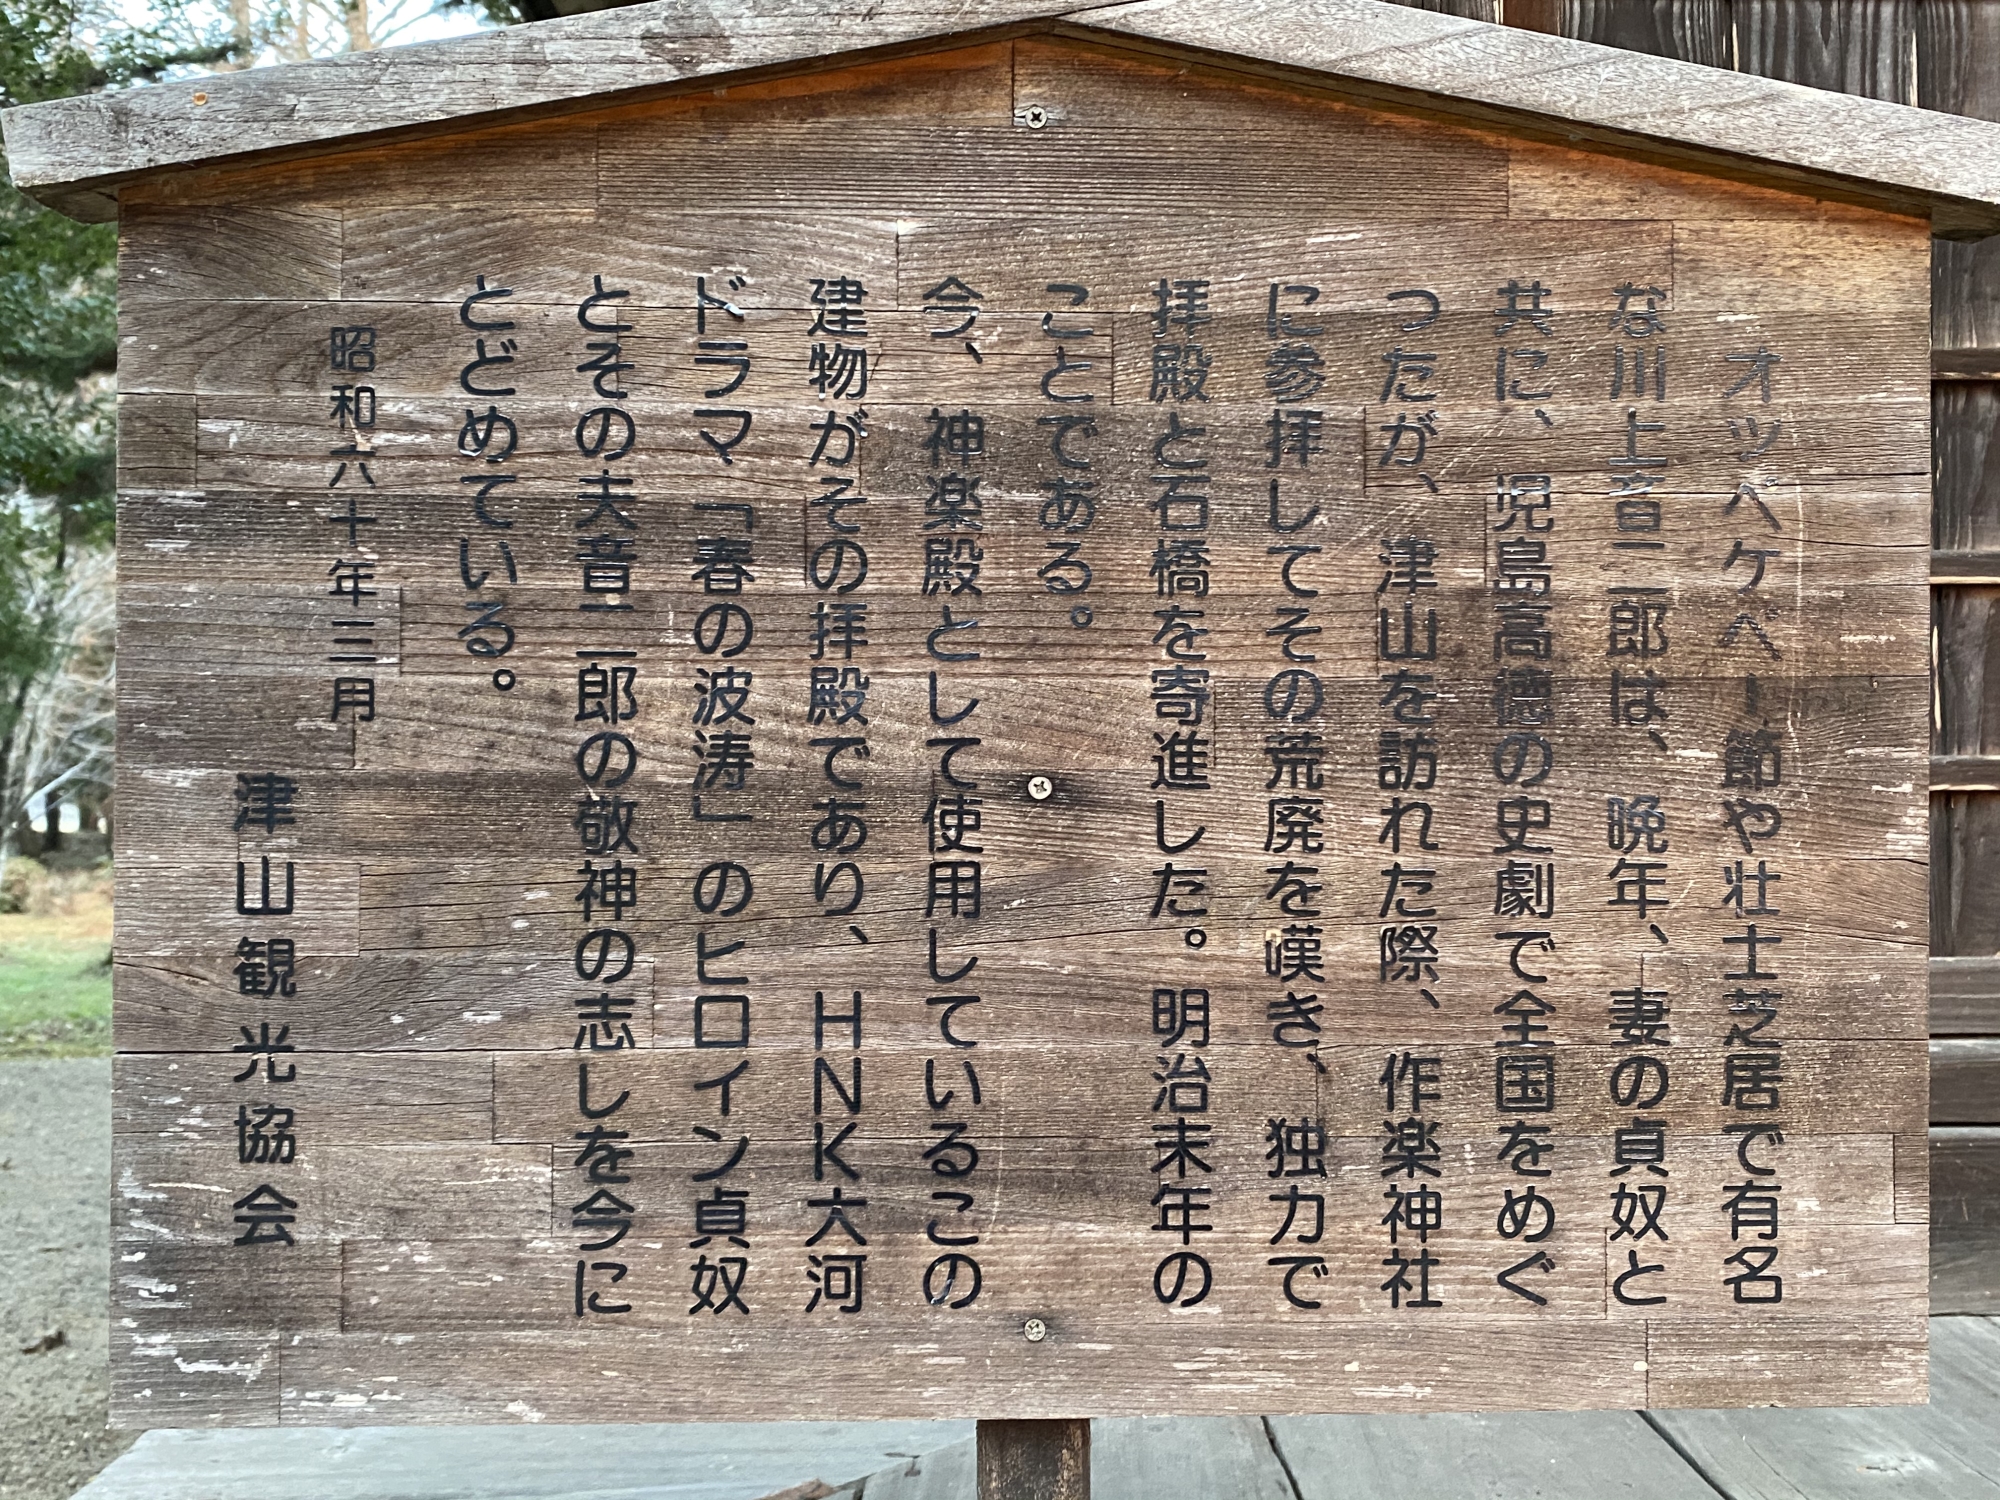 オツペケペー節や壮士芝居で有名
な川上音二郎は、晩年、妻の貞奴と
共に、児島高徳の史劇で全国をめぐ
つたが、津山を訪れた際、作楽神社
に参拝してその荒廃を嘆き、独力で
拝殿と石橋を寄進した。明治末年の
ことである。
今、神楽殿として使用しているこの
建物がその拝殿であり、HNK大河
ドラマ「春の波涛」のヒロイン貞奴
とその夫音二郎の敬神の志しを今に
とどめている。
昭和六十年三月
津山観光協会